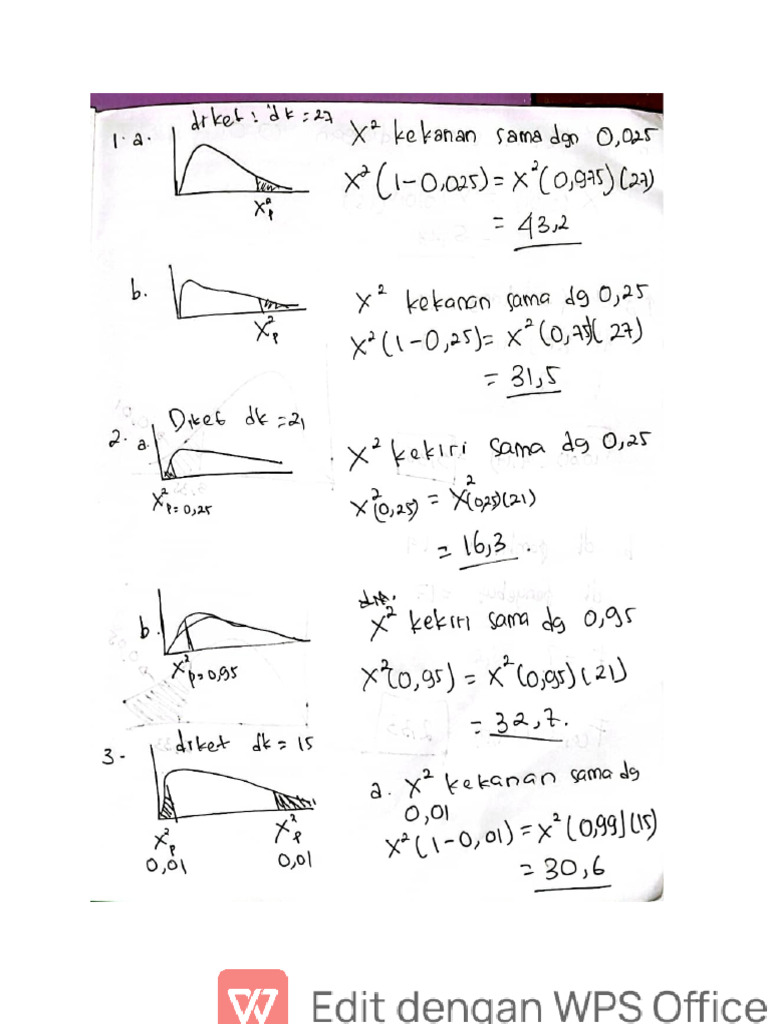 1. a. diket : dk = 27
X² kekanan sama dgn 0,025
X² (1-0,025) = X² (0,975) (27)
= 43,2
X²p
b. X² kekanan sama dg 0,25
X² (1-0,25) = X² (0,75) (27)
= 31,5
X²p
2. Diket dk = 21
a. X² kekiri sama dg 0,25
X²(0,25) = X²(0,25)(21)
= 16,3.
X²p = 0,25
b. X² kekiri sama dg 0,95
X²(0,95) = X²(0,95) (21)
= 32,7.
X²p = 0,95
3. diket dk = 15
a. X² kekanan sama dg
0,01
X² (1-0,01) = X² (0,99) (15)
= 30,6
X²p X²p
0,01 0,01
Edit dengan WPS Office